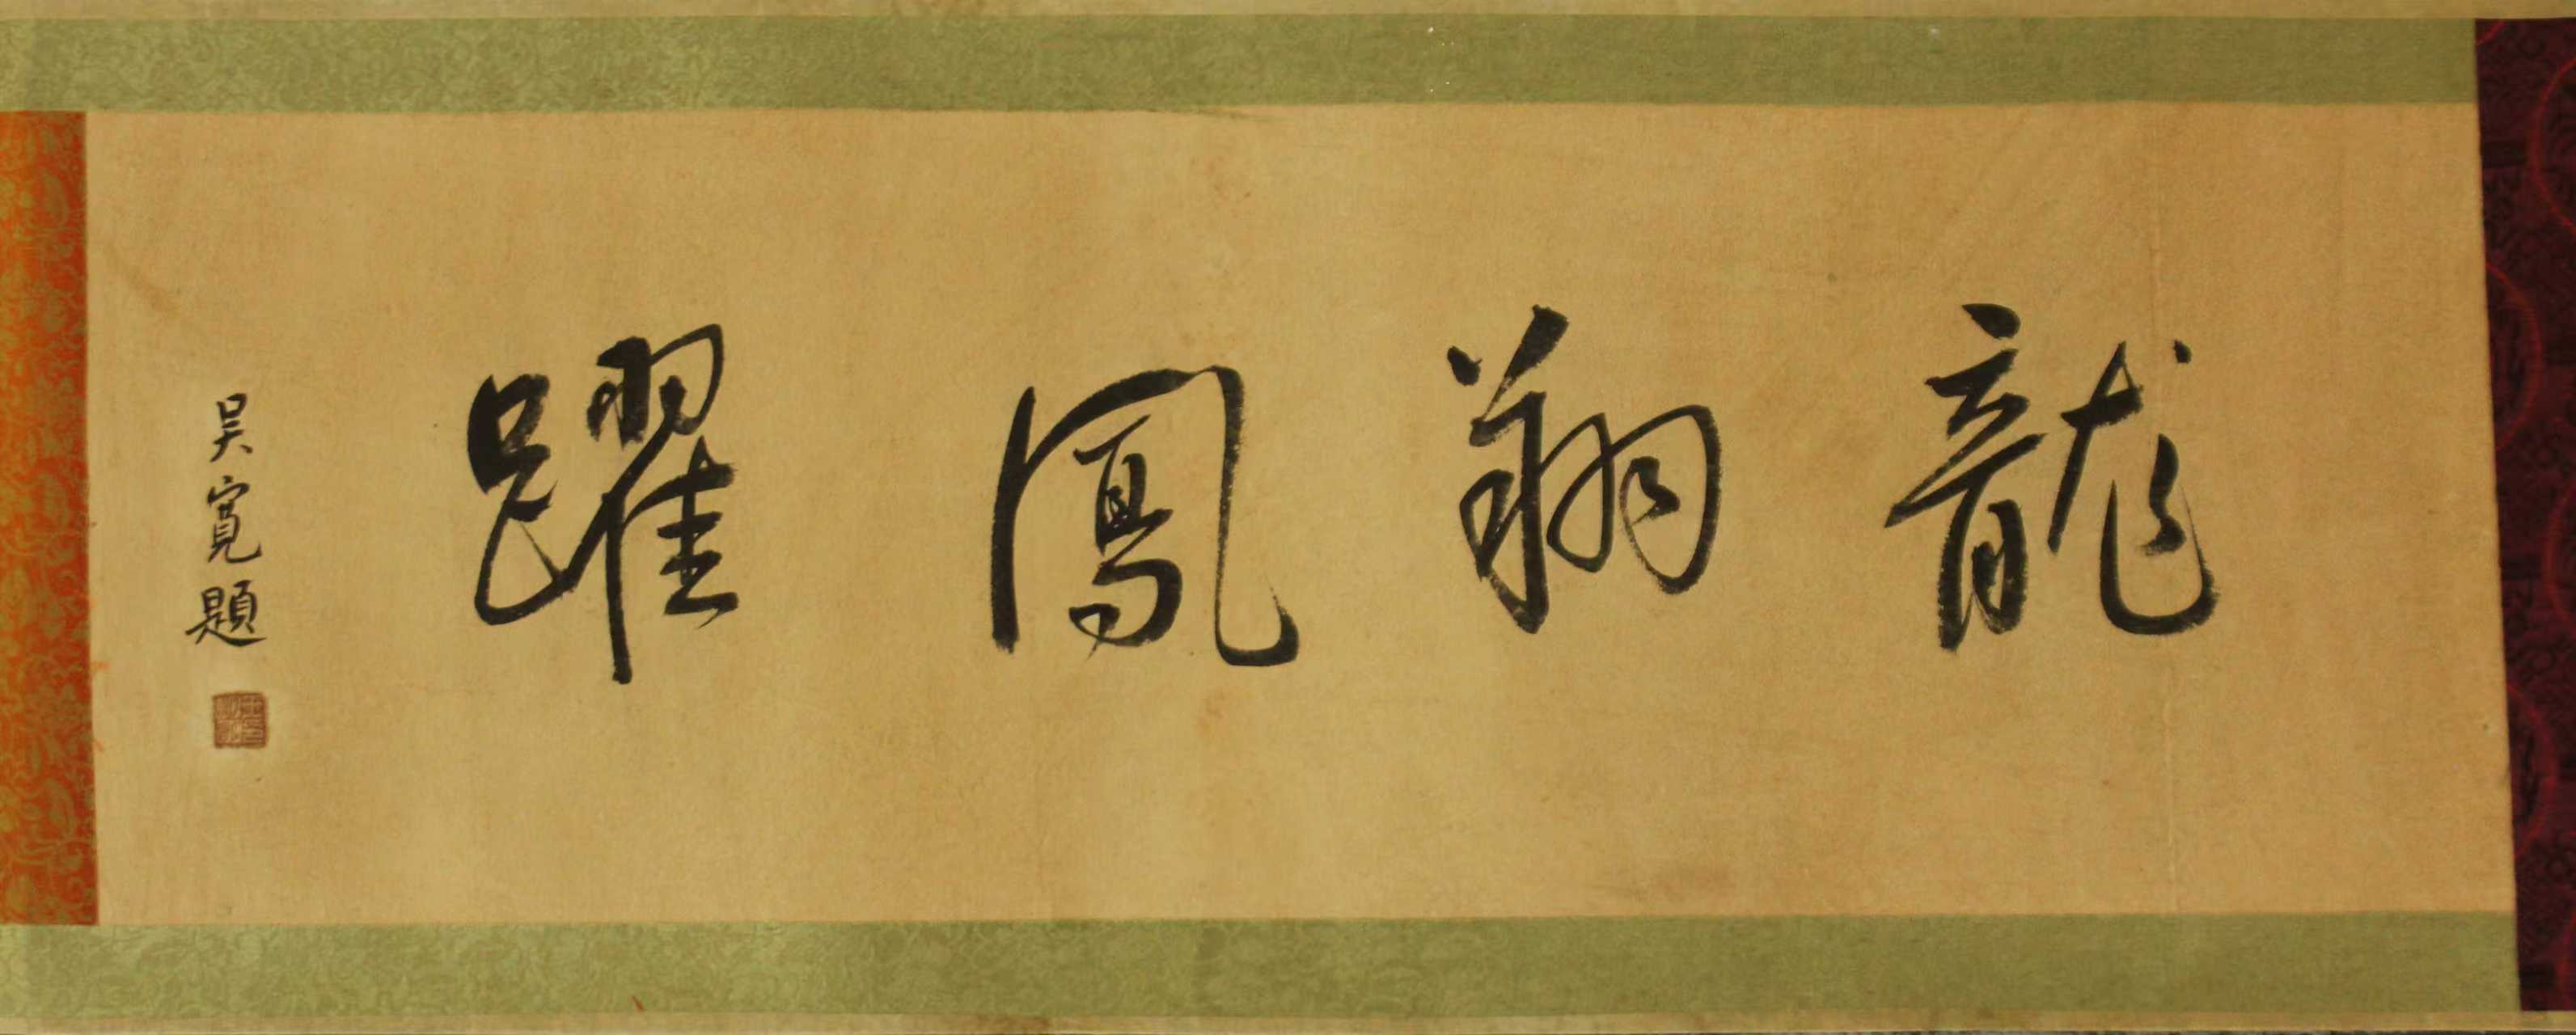 龍翔鳳躍
吴寬題